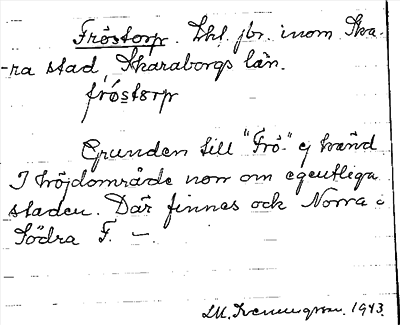 Fröstorp. Lht. jbr. inom Ska-
-ra stad, Skaraborgs län.
frö́storp
Grunden till "Frö-" ej känd.
I höjdområde norr om egentliga
staden. Där finnas ock Norra o
Södra F. —.
1943.